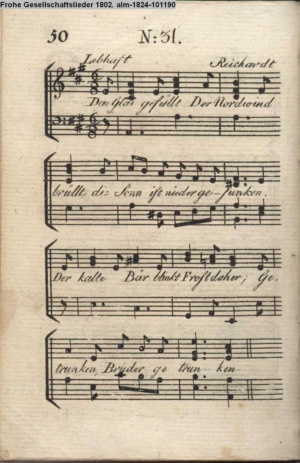 Frohe Gesellschaftslieder 1802. alm-1824-101190
50 N: 31.
Lebhaft Reichardt
Das Glas gefüllt Der Nordwind
brüllt, die Sonn ist niederge-sunken.
Der kalte Bär blinkt Frost daher; Ge-
trunken, Brüder ge trun ken